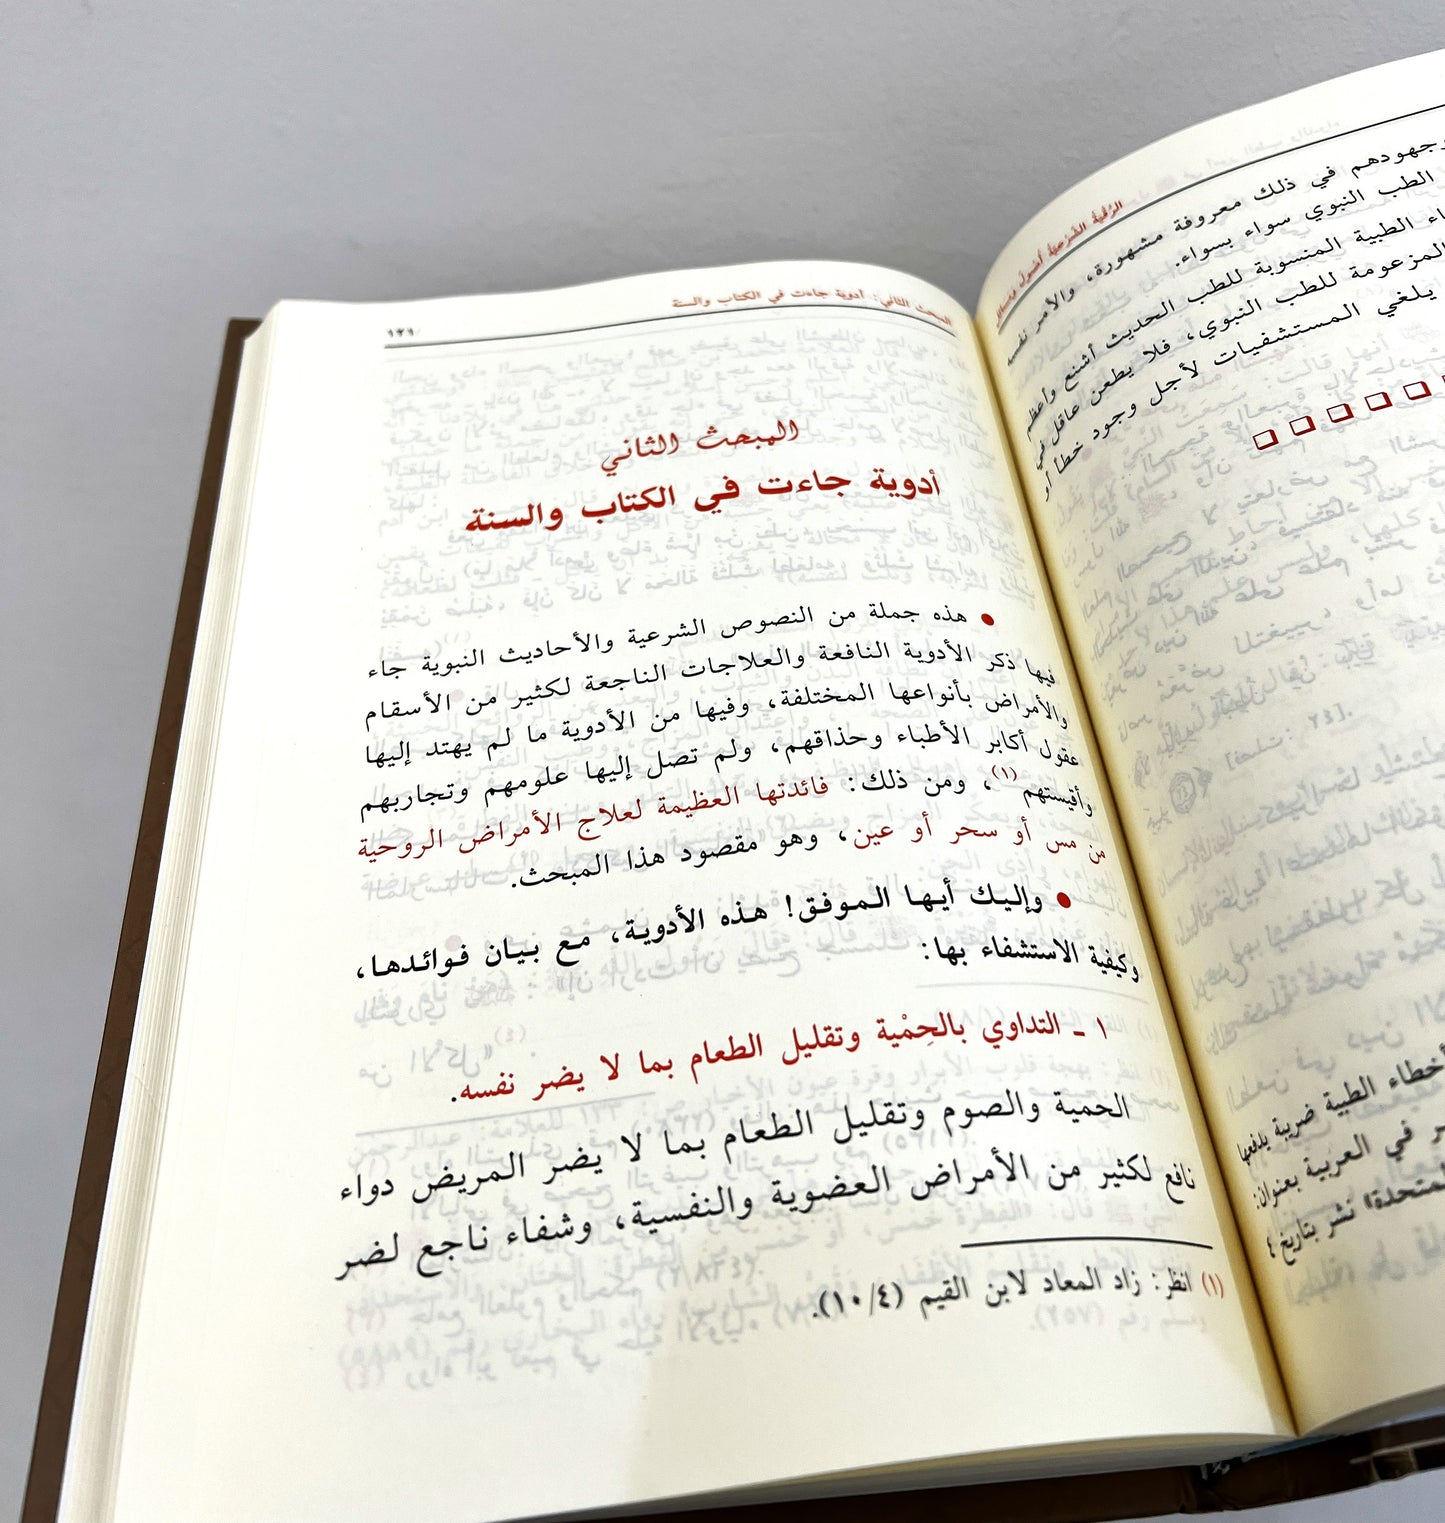 الرقية الشرعية أصول ومسائل
وجهودهم في ذلك معروفة مشهورة، والأمر نفسه
الطب النبوي سواء بسواء.
الطبية المنسوبة للطب الحديث أشنع وأعظم
المزعومة للطب النبوي، فلا يطعن عاقل في
يلغي المستشفيات لأجل وجود خطأ أو
أخطاء الطبية ضريبة يدفعها
في العربية بعنوان:
المتحدة» نشر بتاريخ ٤
المبحث الثاني: أدوية جاءت في الكتاب والسنة
١٢١
المبحث الثاني
أدوية جاءت في الكتاب والسنة
• هذه جملة من النصوص الشرعية والأحاديث النبوية جاء
فيها ذكر الأدوية النافعة والعلاجات الناجعة لكثير من الأسقام
والأمراض بأنواعها المختلفة، وفيها من الأدوية ما لم يهتد إليها
عقول أكابر الأطباء وحذاقهم، ولم تصل إليها علومهم وتجاربهم
وأقيستهم(١)، ومن ذلك: فائدتها العظيمة لعلاج الأمراض الروحية
من مس أو سحر أو عين، وهو مقصود هذا المبحث.
• وإليك أيها الموفق! هذه الأدوية، مع بيان فوائدها،
وكيفية الاستشفاء بها:
١ ـ التداوي بالحِمْية وتقليل الطعام بما لا يضر نفسه.
الحمية والصوم وتقليل الطعام بما لا يضر المريض دواء
نافع لكثير من الأمراض العضوية والنفسية، وشفاء ناجع لضر
(١) انظر: زاد المعاد لابن القيم (١٠/٤).